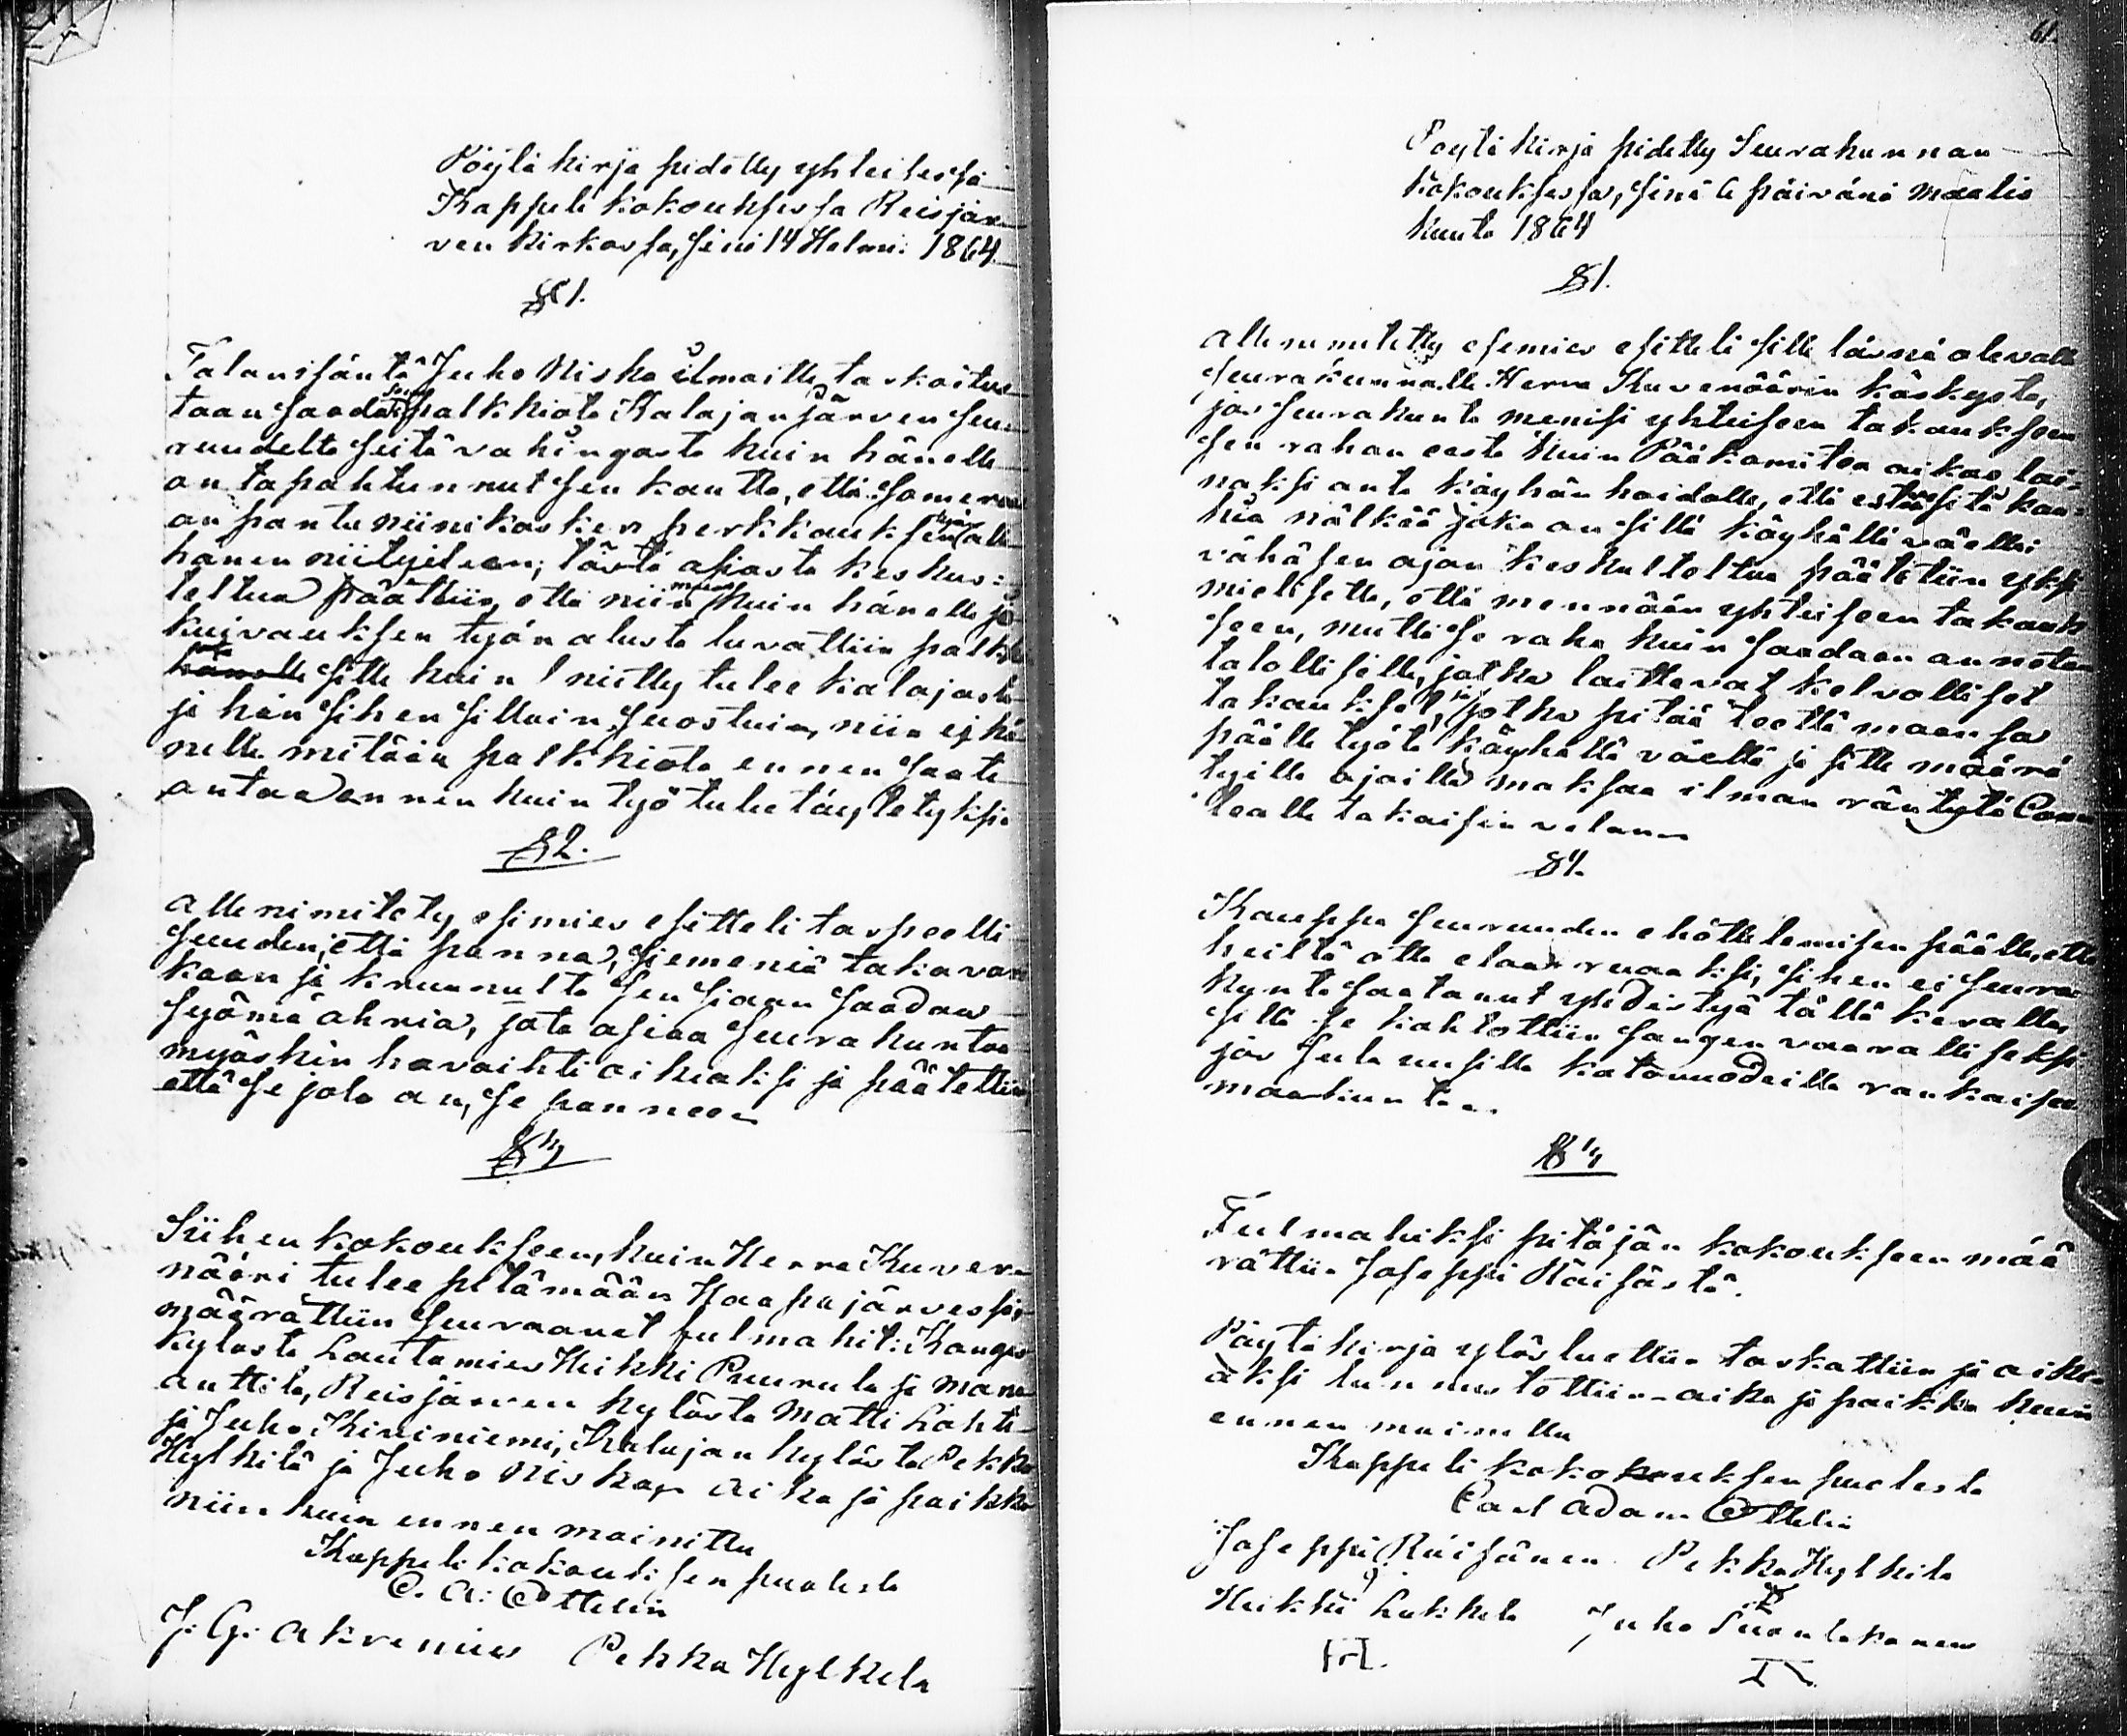 Pöytä kirja pidetty yhteisessä
Kappeli kokouksessa Reisjär-
ven Kirkossa, sinä 14 Helmi: 1864
§ 1.
Talonisäntä Juho Niska ilmoitti tarkoitus
taan saada palkkiota Kalajan järven seu
ruudelta siitä vahingosta kuin hänelle
on tapahtunnut sen kautta, että Someron
on pantu niinikosken perkkauksen työn alle
hänen niityileen; tästä asiasta keskus-
teltua päättiin, että niin kuin hänelle jo
kuivauksen työn alusta luvattiin palkka
hänelle sitte kuin niitty tulee kalajasta
ja hän sihen silloin suostuin, niin ej hä
nelle mitään palkkiota ennen saata
antaa ennen kuin työ tulee täyteteyksi
§ 2.
Alle nimitetty esimies esitteli tarpeelli
suuden, että panna, siemeniä takavari
kaan ja kruunulta sen siaan saadaan
syömä ohria, jota asiaa seurakuntaa
myöskin havaihti oikiaksi ja päätettiin
että se jola on, se panneen
§ 3
Siihen kokoukseen, kuin Herra Kuver-
nööri tulee pitämään Haapajärvessä,
määrättiin seuraavat fulmahit: Kangas
kylästä Lautamies Heikki Puurula ja Mana
anttila, Reisjärven kylästä Matti Lahti
ja Juho Kiviniemi, Kalajan kylästä Pekka
Hylkilä ja Juho Niska, Aika ja paikka
niin kuin ennen mainittu
Kappeli kokouksen puolesta
C. A: Ottelin
J: G: Akrenius Pekka Hylkilä
61.
Poytä kirja pidetty Seurakunnan
kokouksessa, sinä 6 päivänä maalis
kuuta 1864
§ 1.
Alle nimitetty esimies esitteli sille läsnä olevalle
seurakunnalle Herra Kuvenöörin käskystä,
jos seurakunta menisi yhteiseen takaukseen
sen rahan eestä kuin Pääkomitea aikoo lai-
naksi anta käyhän hoidolle, että estää sitä kau-
hia nälkää joka on sillä käyhällä väellä
vähäsen ajan keskusteltua päätettiin yksi
mielisette, että mennään yhteiseen takauk
seen, mutta se raha kuin saadaan annetaan
talollisille, jotka laittavat kelvolliset
takaukset, jotka pitää teettä maansa
päälle työtä käyhällä väellä ja sitte määrä
tyillä ajoilla maksaa ilman räntytä Com
tealle takaisin velan
§ 2.
Kauppa seuruuden ehöttelemisen päälle, että
heiltä otta elaan ruaaksi, sihen ei seura
kunta saatanut yhdistyä tällä keralla,
sillä se kahtottiin sangen vaaralliseksi
jos Jula uusilla katovuodeilla rankaisee
maakuntaa.
§ 3
Fulmahiksi pitäjän kokoukseen mää
rättiin Joseppi Räisästä.
Päytä kirja ylös luettiin tarkattiin ja oike-
aksi tunnustettiin - aika ja paikka kuin
ennen mainittu
Kappeli kokokouksen puolesta
Carl Adam Ottelin
Joseppi Räisänen Pekka Hylkilä
Heikki Lukkola Juho Suontakanen